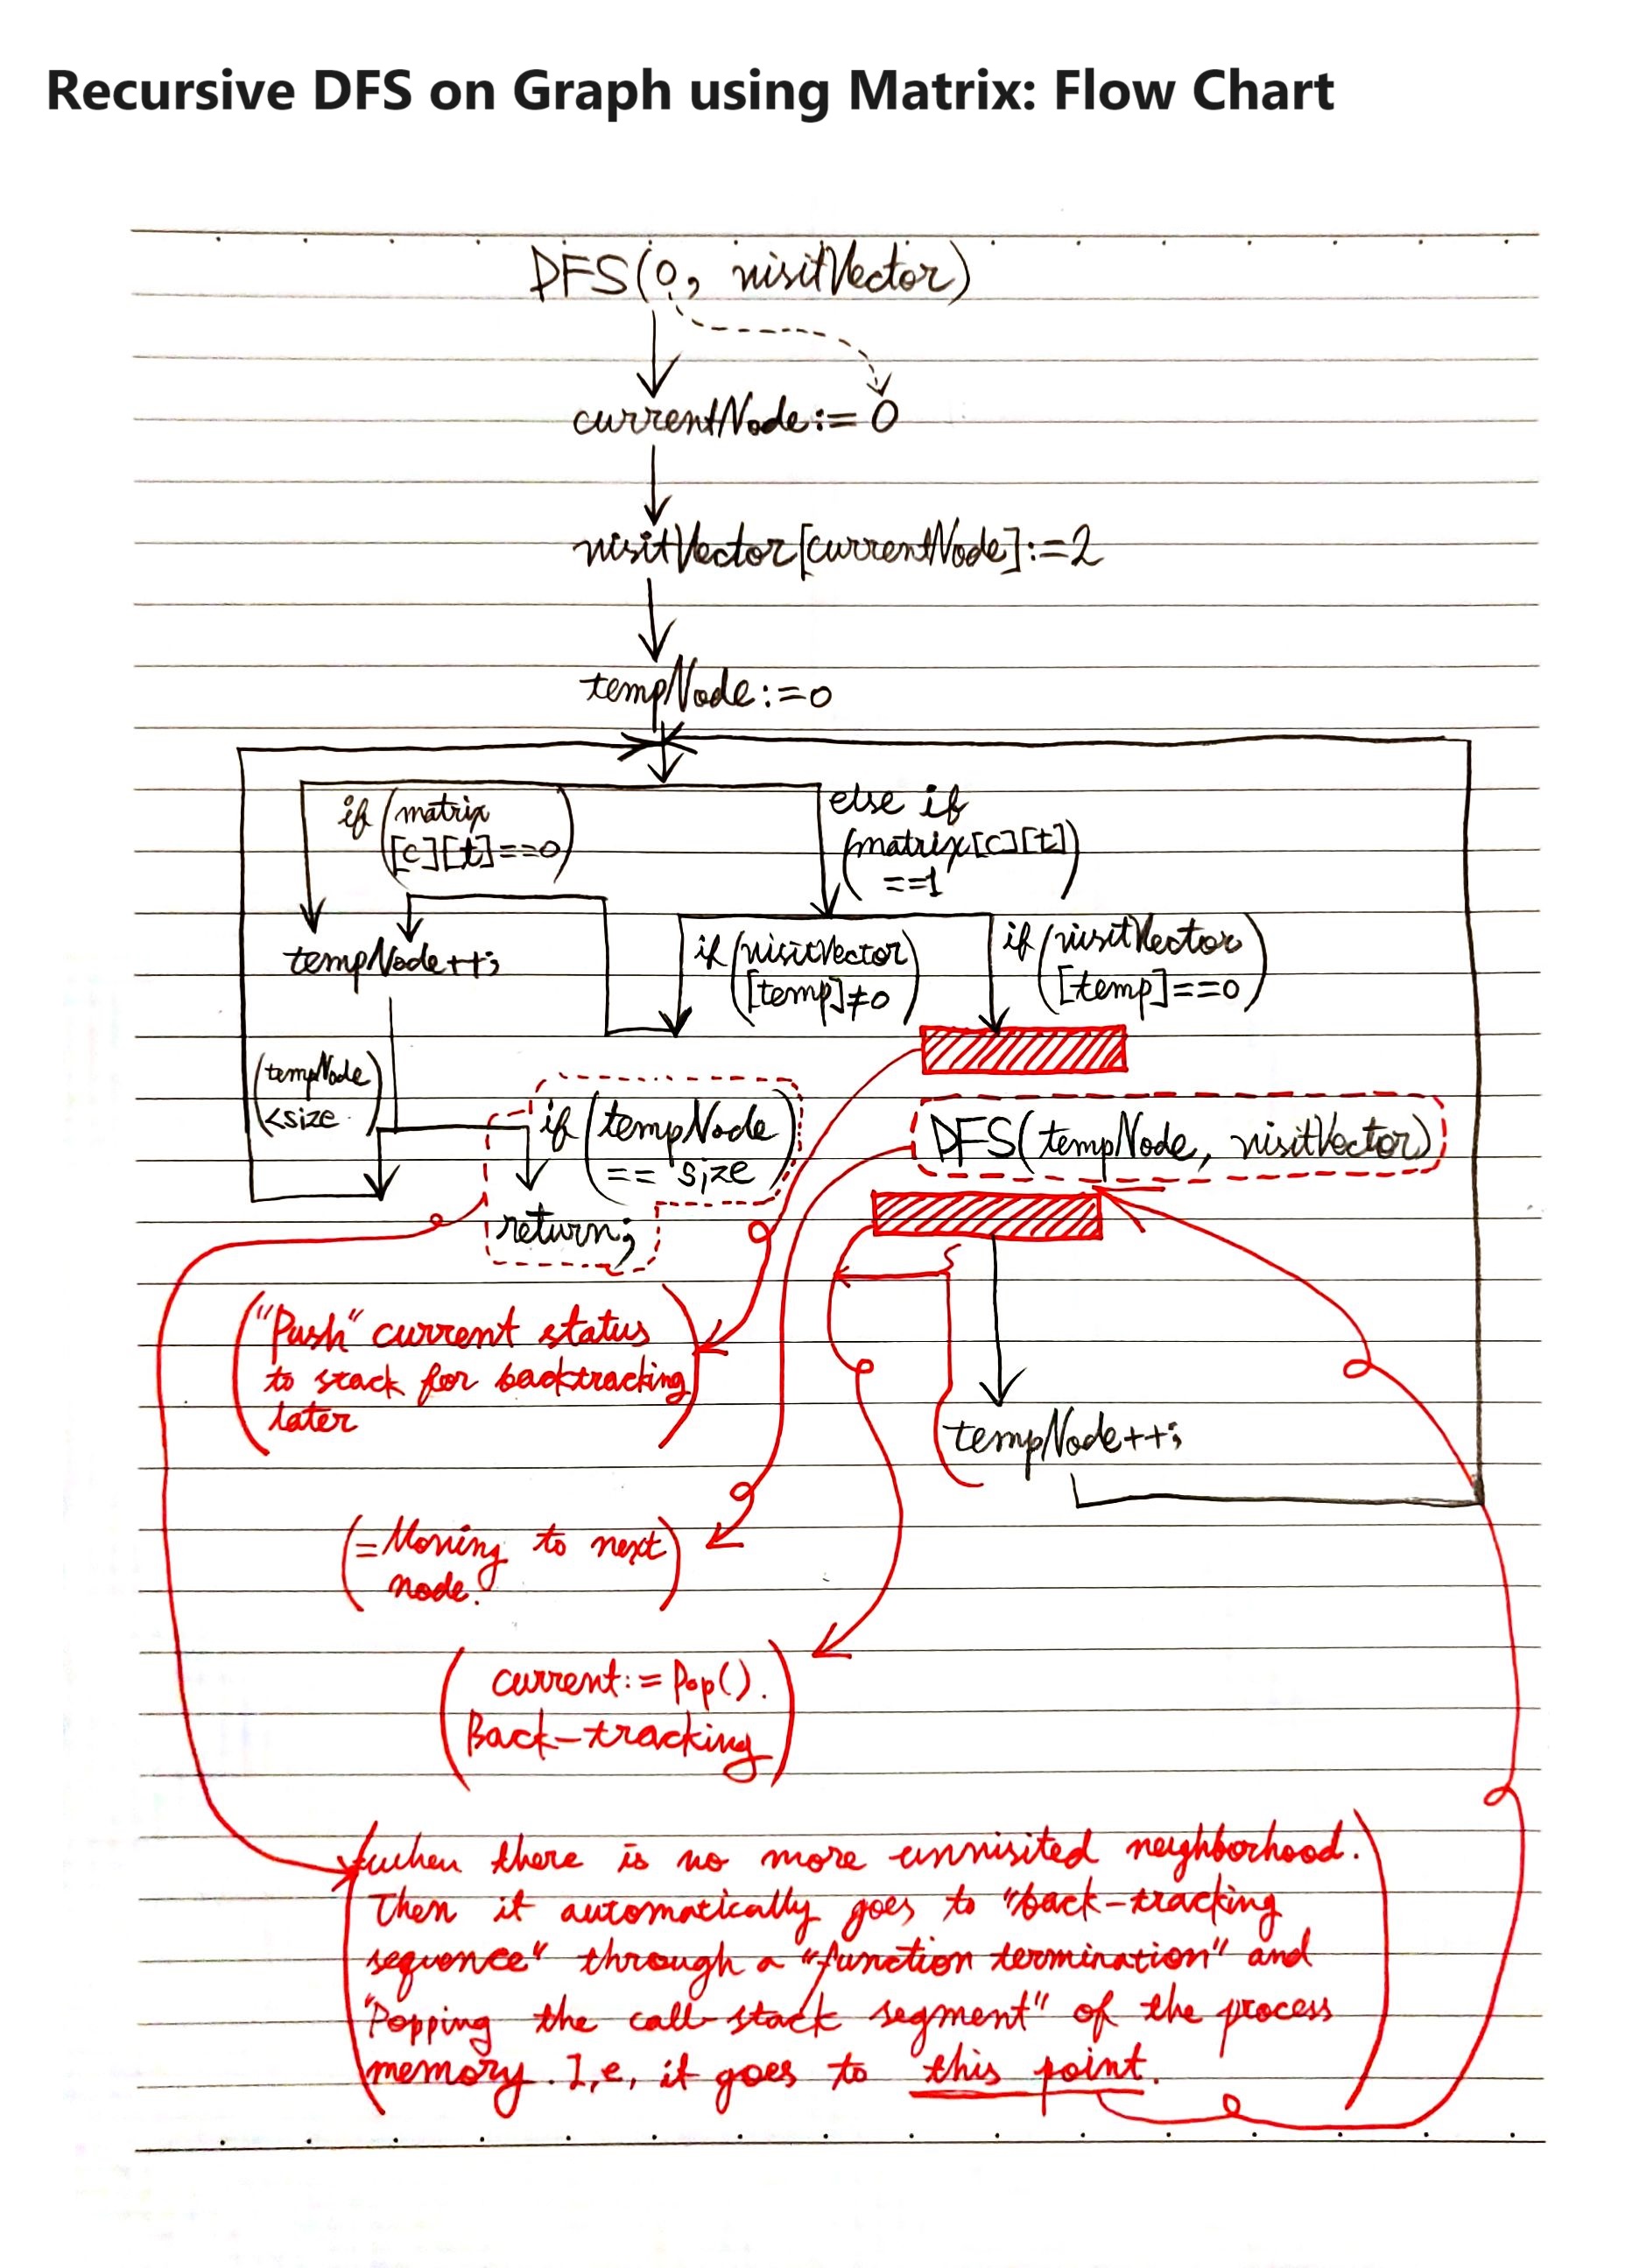 Recursive DFS on Graph using Matrix: Flow Chart
DFS(0, visitVector)
currentNode:= 0
visitVector[currentNode]:=2
tempNode:=0
if (matrix
[c][t]==0)
else if
(matrix[c][t]
==1)
tempNode++;
if (visitVector
[temp]≠0)
if (visitVector
[temp]==0)
(tempNode
<size)
if (tempNode
== size)
return;
DFS(tempNode, visitVector)
("Push" current status
to stack for backtracking
later)
tempNode++;
(=Moving to next
node.)
(current:= Pop().
Back-tracking)
(when there is no more unvisited neighborhood.
Then it automatically goes to "back-tracking
sequence" through a "function termination" and
"Popping the call-stack segment" of the process
memory. I,e, it goes to this point.)